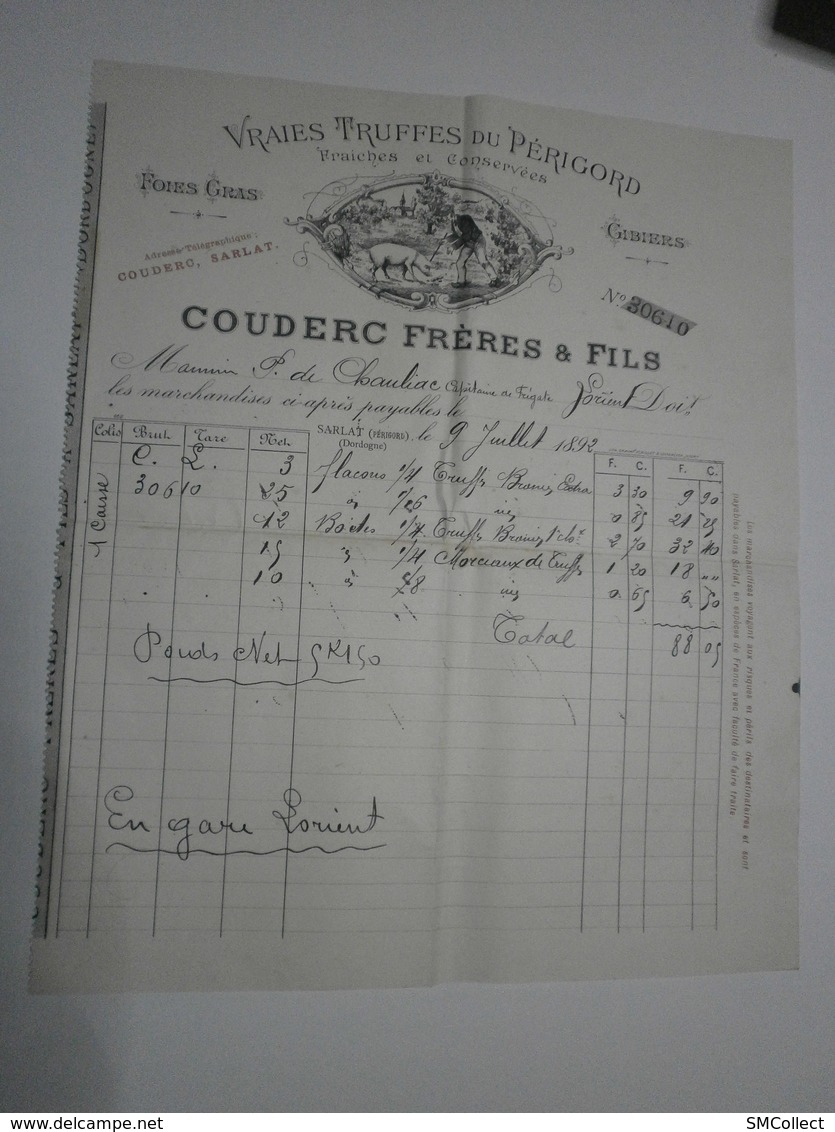 VRAIES TRUFFES DU PÉRIGORD
Fraiches et Conservées
FOIES GRAS
GIBIERS
Adresse Télégraphique:
COUDERC, SARLAT.
Nº 30610
COUDERC FRÈRES & FILS
P. de Chauliac Capitaine de Frégate Lorient Doit
les marchandises ci-après payables le
SARLAT (PÉRIGORD), le 9 Juillet 1892
(Dordogne)
Colis Brut Tare Net F. C. F. C.
C. L. 3 flacons 1/4 Truffes Extra 3 30 9 90
30610 25 0 85 21 25
12 Boites 1/4 Truffes 2 70 32 40
15 1/4 Morceaux de Truffes 1 20 18 „„
10 1/8 0 65 6 50
1 Caisse
Total 88 05
Poids Net 5K150
En gare Lorient
Les marchandises voyagent aux risques et périls des destinataires et sont
payables dans Sarlat, en espèces de France avec faculté de faire traite.
SMCollect